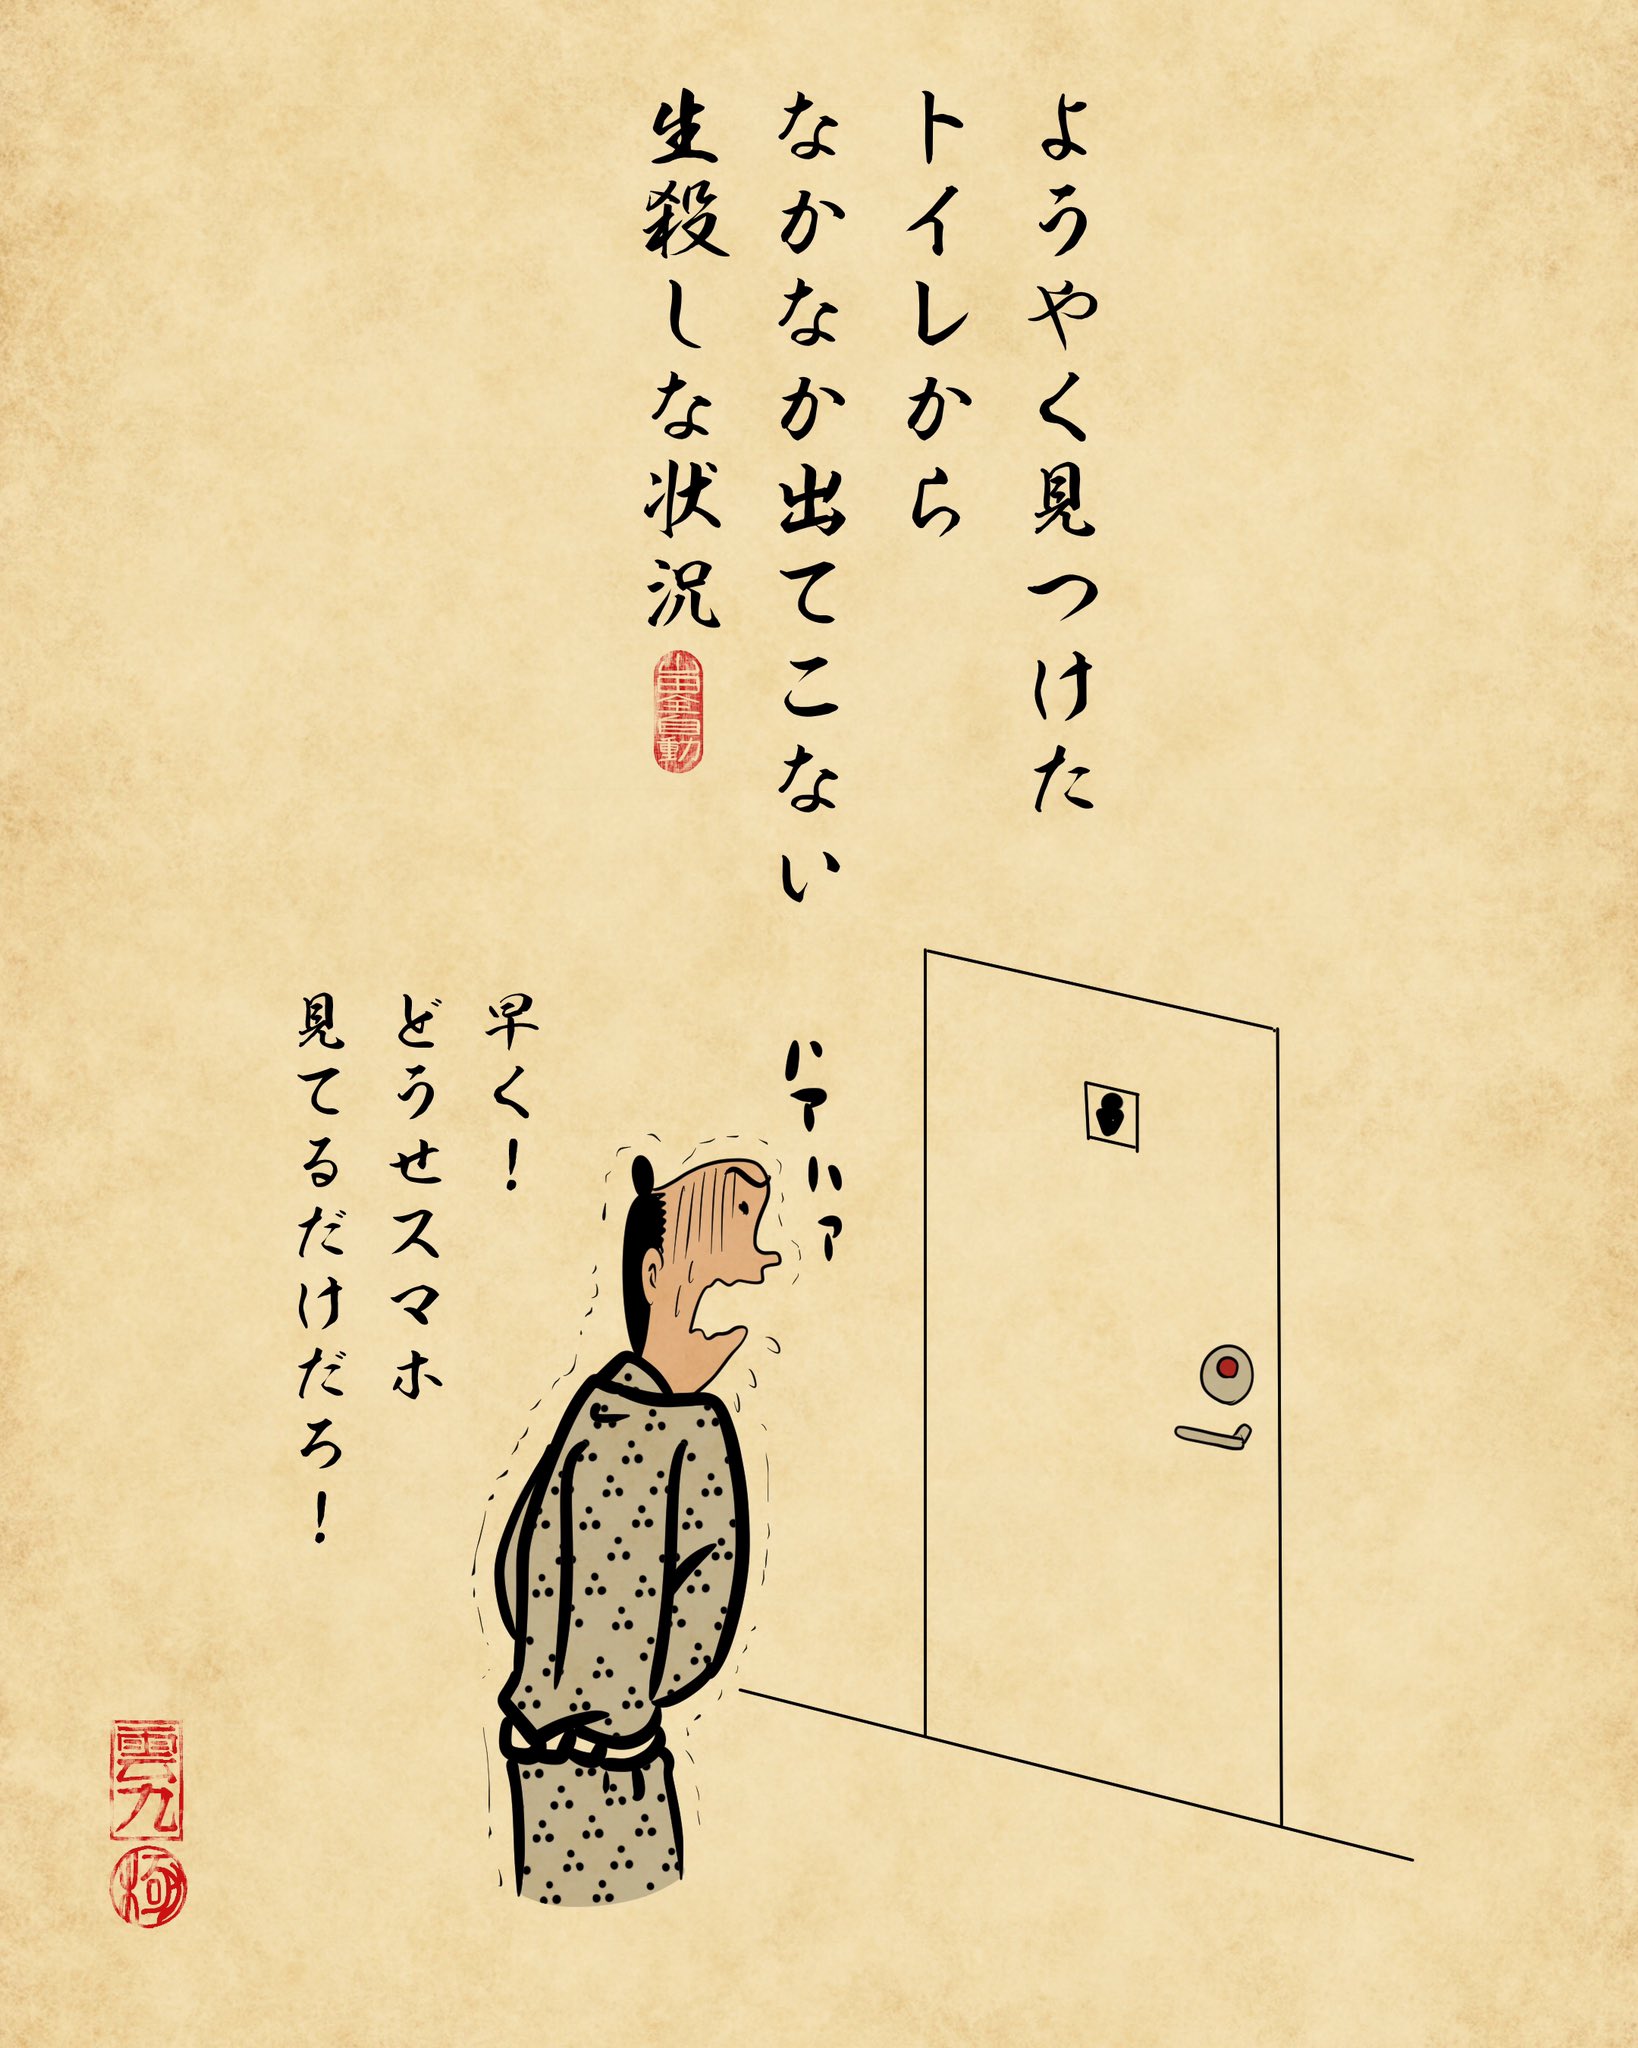 ようやく見つけた
トイレから
なかなか出てこない
生殺しな状況
山田全自動
ハァハァ
早く！
どうせスマホ
見てるだけだろ！
雲九
極